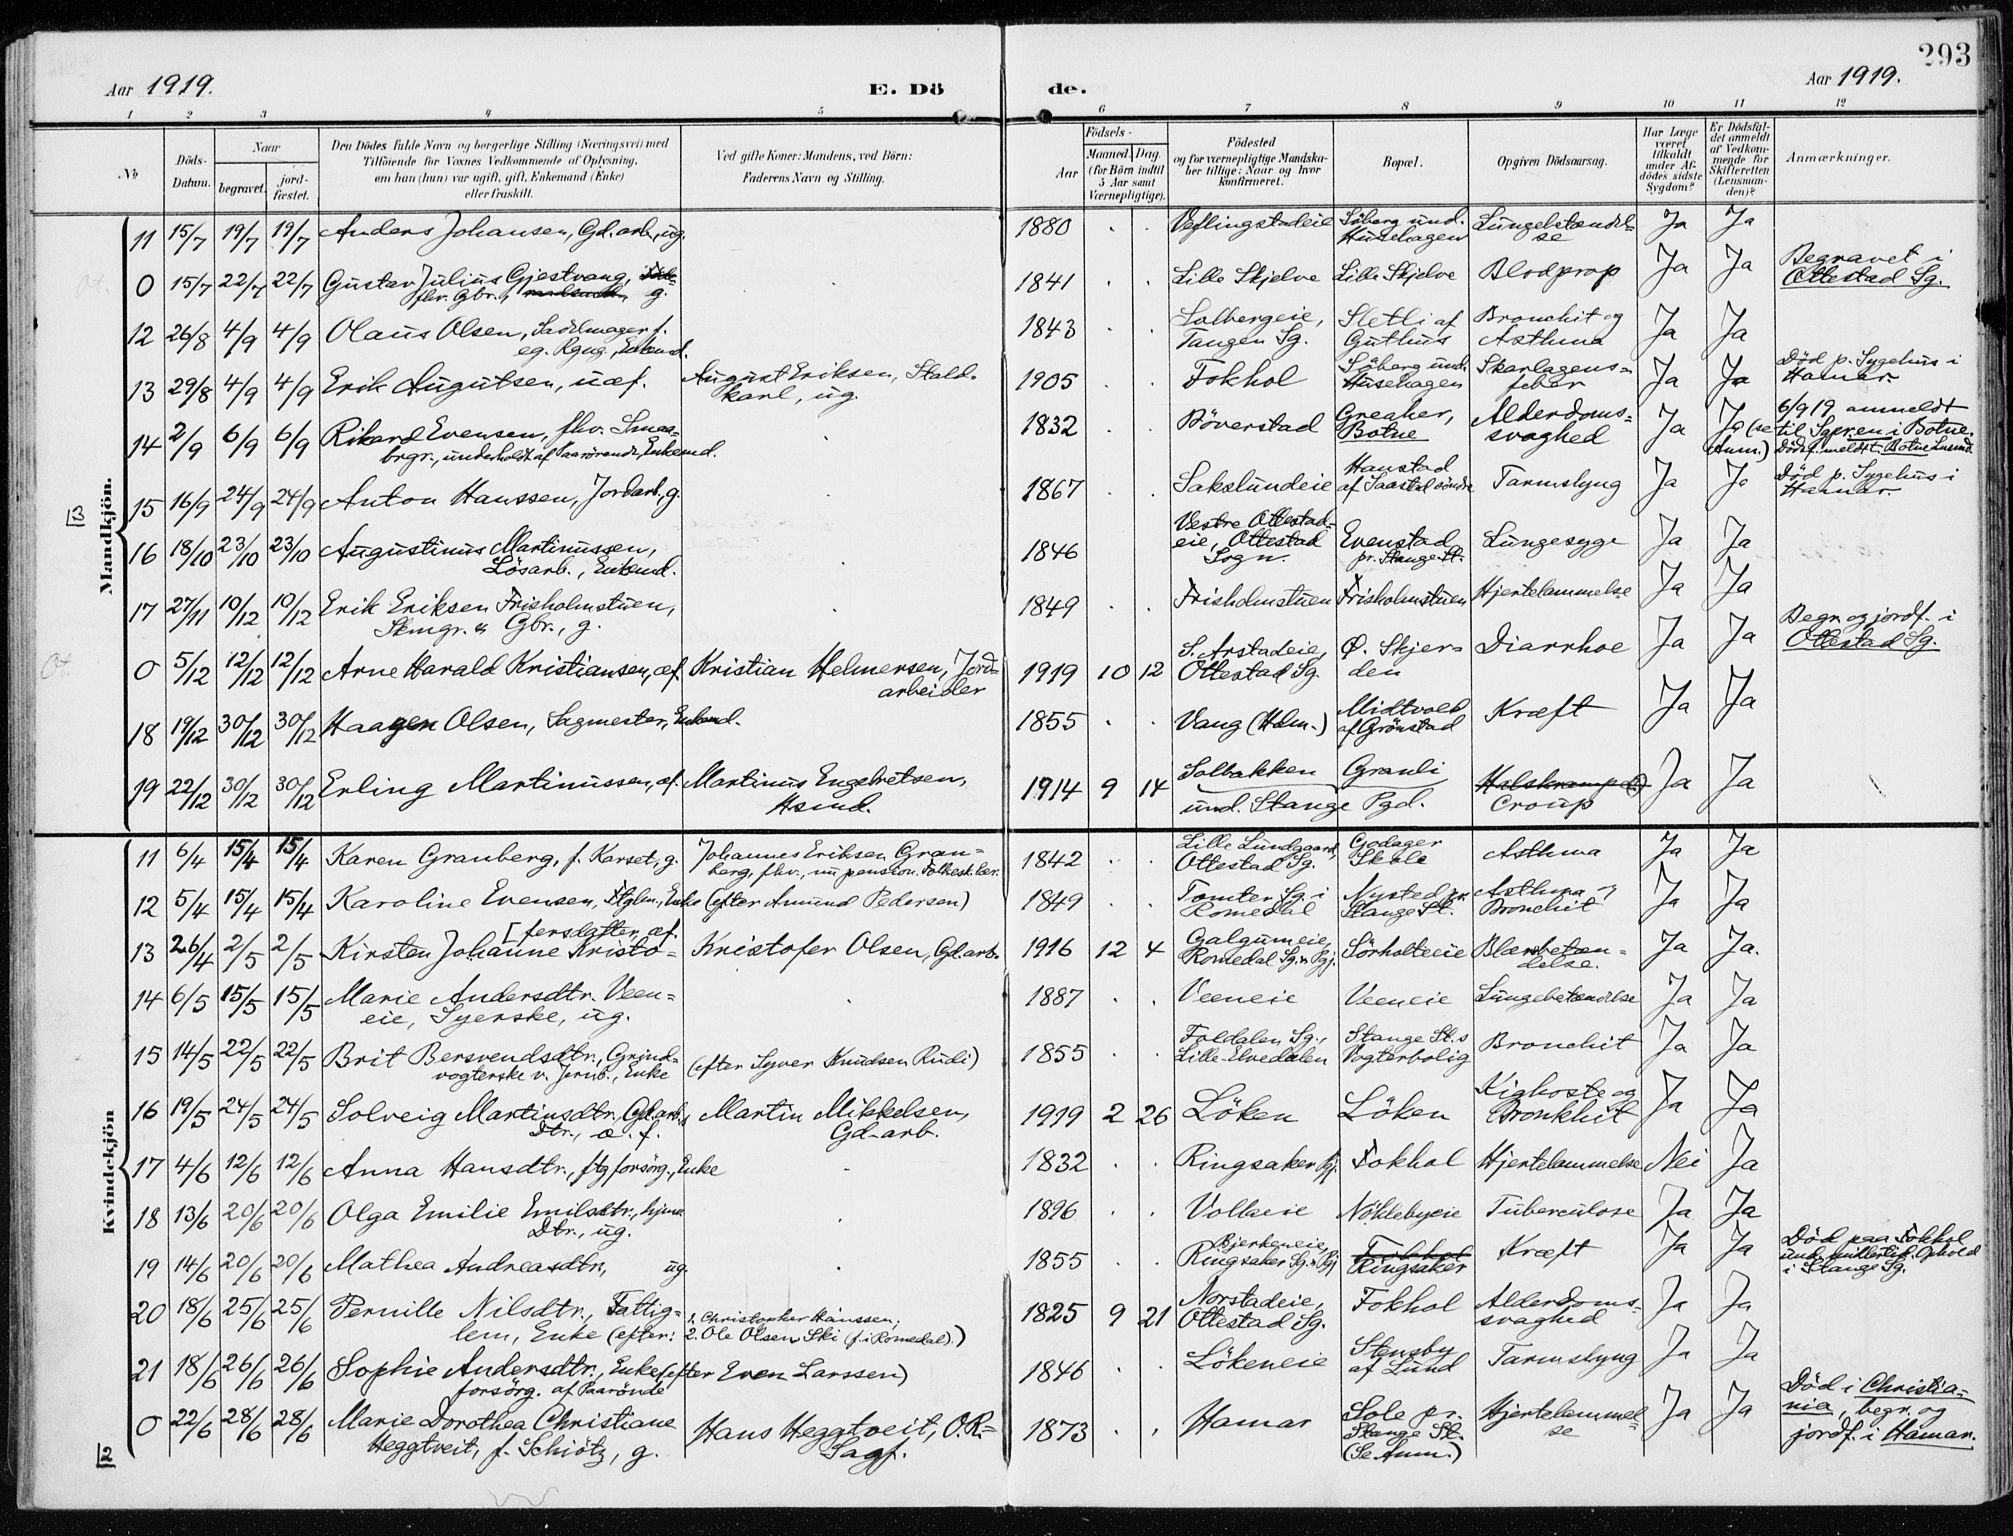 293
Aar 1919. E. Dö de. Aar 1919.
1 2 3 4 5 6 7 8 9 10 11 12
No
Döds-Datum.
Naar
begravet.
jord-fæstet.
Den Dödes fulde Navn og borgerlige Stilling (Næringsvei) med
Tilföiende for Voxnes Vedkommende af Oplysning,
om han (hun) var ugift, gift, Enkemand (Enke)
eller fraskilt.
Ved gifte Koner: Mandens, ved Börn:
Faderens Navn og Stilling.
Födsels-
Aar
Maaned. Dag.
(for Börn indtil
5 Aar samt
Værnepligtige).
Födested
og for værnepligtige Mandska-
ber tillige: Naar og hvor
konfirmeret.
Bopæl.
Opgiven Dödsaarsag.
Har Læge
været
tilkaldt
under Af-
dödes sidste
Sygdom?
Er Dödsfal-
det anmeldt
af Vedkom-
mende for
Skifteretten
(Lensman-
den)?
Anmærkninger.
Mandkjön.
13
11 15/7 19/7 19/7 Anders Johansen, Gd.arb., ug. 1880 . . Veflingstadeie Söberg und. Husehagen Lungebetændelse Ja Ja
Ot. 0 15/7 22/7 22/7 Gustav Julius Gjestvang, flv. Gbr., g. . 1841 . . Lille Skjelve Lille Skjelve Blodprop Ja Ja Begravet i Ottestad Sg.
12 26/8 4/9 4/9 Olaus Olsen, Sadelmager f. eg. Rgng., Enkemd. . 1843 . . Solbergeie, Tangen Sg. Sletli af Guthus Bronchit og Asthma Ja Ja
13 29/8 4/9 4/9 Erik Augutsen, uæf. August Eriksen, Stald-karl, ug. 1905 . . Fokhol Söberg und. Husehagen Skarlagens=feber Ja Ja Död p. Sygehus i Hamar.
14 2/9 6/9 6/9 Rikard Evensen, fhv. Smaa=brgr., underholdt af Paarörende, Enkemd. . 1832 . . Böverstad Greaker, Botne Alderdoms=svaghed Ja Ja (se Anm.) 6/9 19 anmeldt til Sgpr.en i Botne. Dödsf. meldt t. Botne Lensmd.
15 16/9 24/9 24/9 Anton Hanssen, Jordarb., g. . 1867 . . Sakslundeie Hanstad af Saastad söndre Tarmslyng Ja Ja Död p. Sygehus i Hamar.
16 18/10 23/10 23/10 Augustinus Martinussen, Lösarb., Enkemd. . 1846 Vestre Ottestad-eie, Ottestad Sogn. Evenstad pr. Stange St. Lungesyge Ja Ja
17 27/11 10/12 10/12 Erik Eriksen Frisholmstuen, Skmgr. & Gbr., g. . 1849 . . Frisholmstuen Frisholmstuen Hjertelammelse Ja Ja
Ot. 0 5/12 12/12 12/12 Arne Harald Kristiansen, æf. Kristian Helmersen, Jord=arbeider 1919 10 12 S. Arstadeie, Ottestad Sg. Ø. Skjer=den Diarrhoe Ja Ja Begr. og jordf. i Ottestad Sg.
18 19/12 30/12 30/12 Haagen Olsen, Sagmester, Enkemd. 1855 . . Vang (Hdm.) Midtvold af Grönstad Kræft Ja Ja
19 22/12 30/12 30/12 Erling Martinussen, æf. Martinus Engebretsen, Hsmd. 1914 9 14 Solbakken Granli und. Stange Pgd. Halskrampe Croup Ja Ja
Kvindekjön
12
11 6/4 15/4 15/4 Karen Granberg, f. Karset, g. Johannes Eriksen Gran=berg, fhv., nu pension. Folkesk.lær. 1842 . . Lille Lundgaard, Ottestad Sg. Godager Skole Asthma Ja Ja
12 5/4 15/4 15/4 Karoline Evensen, Ftglm., Enke (efter Amund Pedersen) 1849 . . Tomter Sg. i Romedal Nysted pr. Stange St. Asthma, Bronchit Ja Ja
13 26/4 2/5 2/5 Kirsten Johanne Kristo=[fersdatter, æf. Kristofer Olsen, Gd.arb. 1916 12 4 Galgumeie, Romedal Sg. & Pgj. Sörholteeie Blærebetæn=delse. Ja Ja.
14 6/5 15/5 15/5 Marie Andersdtr. Veen=eie, Syerske, ug. . 1887 . . Veeneie Veeneie Lungebetændelse Ja Ja
15 14/5 22/5 22/5 Brit Bersvendsdtr., Grind=vogterske v. Jernb., Enke (efter Syver Knudsen Rudi) 1855 . . Foldalen Sg., Lille-Elvedalen Stange St.s Vogterbolig Bronchit Ja Ja
16 19/5 24/5 24/5 Solveig Martinsdtr., Gd.arb.s Dtr., æ. f. Martin Mikkelsen, Gd-arb. 1919 2 26 Löken Löken Kighoste og Bronkhit Ja Ja
17 4/6 12/6 12/6 Anna Hansdtr., ftgforsörg., Enke . 1832 . . Ringsaker Pgj. Fokhol Hjertelammelse Nei Ja
18 13/6 20/6 20/6 Olga Emilie Emilsdtr., hjmv. Dtr., ug. . 1896 . . Vollaeie Nöklebyeie Tuberculose Ja Ja
19 14/6 20/6 20/6 Mathea Andreasdtr., ug. . 1855 . . Bjerkeneie, Ringsaker Sg. & Pgj Fokhol Ringsaker Kræft Ja Ja Död paa Fokhol und. midlertid. Ophold i Stange Sg.
20 18/6 25/6 25/6 Pernille Nilsdtr., Fattig=lem, Enke (efter: 1. Christopher Hanssen; 2. Ole Olsen Ski (f. i Romedal).) 1825 9 21 Norstadeie, Ottestad Sg. Fokhol Alderdoms=svaghed Ja Ja
21 18/6 26/6 26/6 Sophie Andersdtr., Enke (efter Even Larssen) forsörg. af Paarönde 1846 . . Lökeneie Stensby af Lund Tarmslyng Ja Ja
0 22/6 28/6 28/6 Marie Dorothea Christiane Heggtveit, f. Schiötz, g. Hans Heggtveit, O.R=Sagf. 1873 . . Hamar Sole pr. Stange St. (Se Anm.) Hjertelammel=se Ja Ja Död i Christia=nia, begr. og jordf. i Hamar.